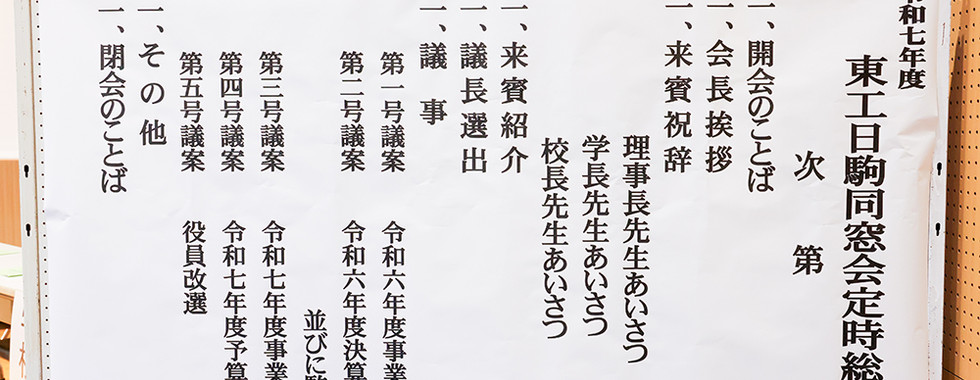 令和七年度
東工日駒同窓会定時総
次第
一、開会のことば
一、会長挨拶
一、来賓祝辞
理事長先生あいさつ
学長先生あいさつ
校長先生あいさつ
一、来賓紹介
一、議長選出
一、議事
第一号議案 令和六年度事業
第二号議案 令和六年度決算
並びに
第三号議案 令和七年度事業
第四号議案 令和七年度予算
第五号議案 役員改選
一、その他
一、閉会のことば